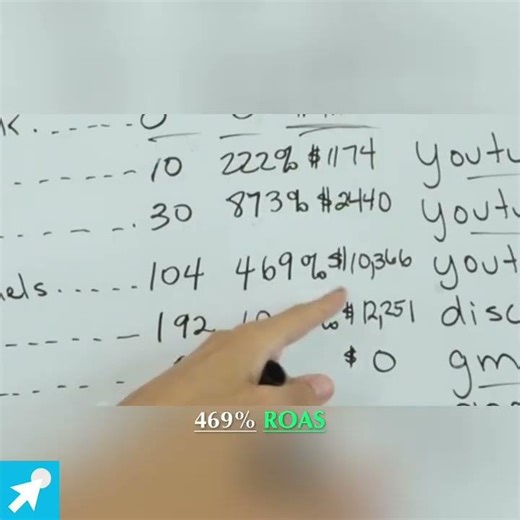 10 222% $1174 youtu
30 873% $2440 youtu
els..... 104 469% $10,366 yout
192 $12,251 disc
$0 gm
469% ROAS